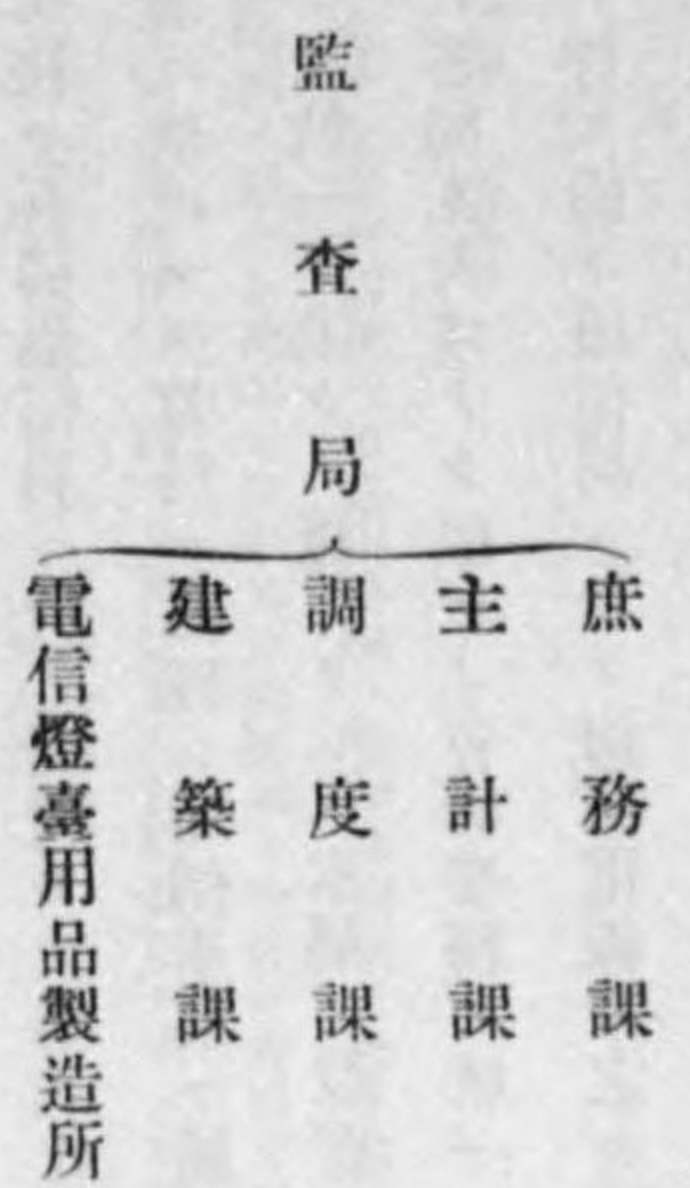 監查局
庶務課
主計課
調度課
建築課
電信燈臺用品製造所